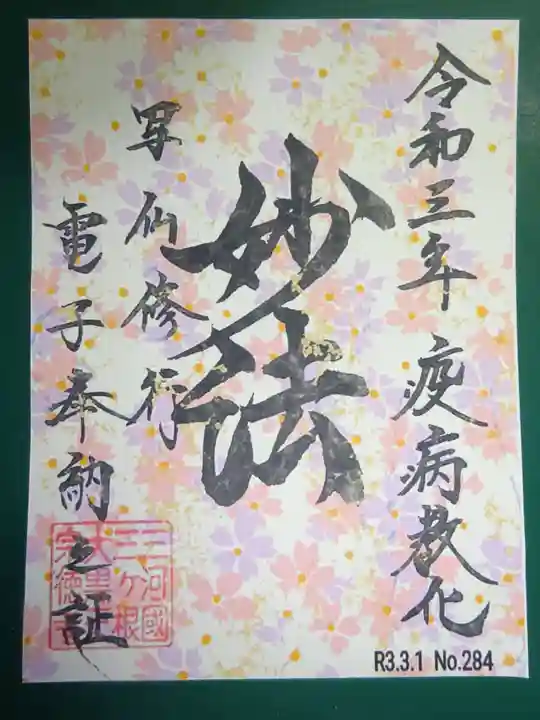 令和三年 疫病教化
妙法
写仏修行
電子奉納之証
三河國
三ヶ根
R3.3.1 No.284